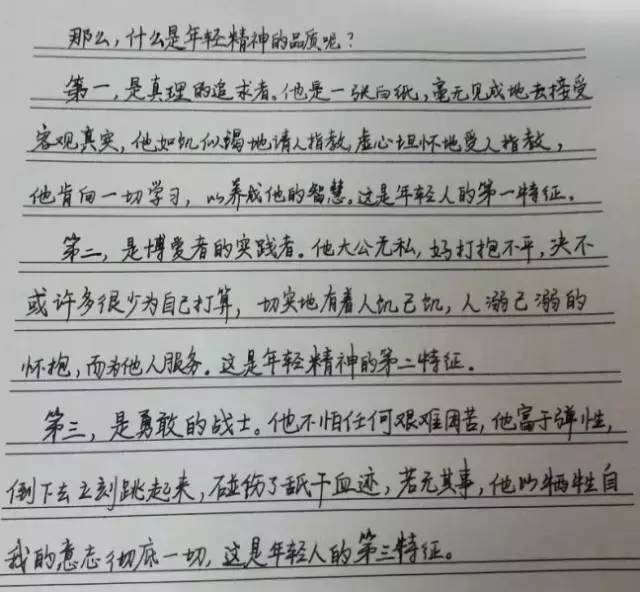 那么，什么是年轻精神的品质呢？
第一，是真理的追求者。他是一张白纸，毫无见成地去接受
客观真实，他如饥似渴地请人指教，虚心坦怀地受人指教，
他肯向一切学习，以养成他的智慧。这是年轻人的第一特征。
第二，是博爱者的实践者。他大公无私，好打抱不平，决不
或许多很少为自己打算，切实地有着人饥己饥，人溺己溺的
怀抱，而为他人服务。这是年轻精神的第二特征。
第三，是勇敢的战士。他不怕任何艰难困苦，他富于弹性，
倒下去立刻跳起来，碰伤了舐干血迹，若无其事，他以牺牲自
我的意志彻底一切，这是年轻人的第三特征。